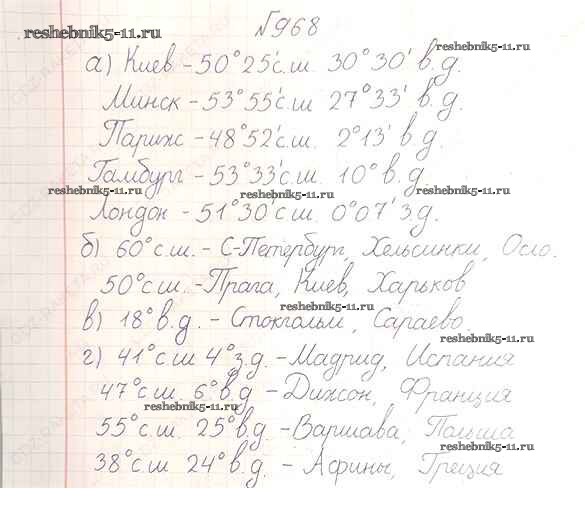 №968
reshebnik5-11.ru
reshebnik5-11.ru
а) Киев - 50°25' с.ш. 30°30' в.д.
Минск - 53°55' с.ш 27°33' в.д.
Париж - 48°52' с.ш. 2°13' в.д.
Гамбург - 53°33' с.ш. 10° в.д.
reshebnik5-11.ru reshebnik5-11.ru reshebnik5-11.ru
Лондон - 51°30' с.ш. 0°07' з.д.
б) 60° с.ш. - С-Петербург, Хельсинки, Осло.
50° с.ш. - Прага, Киев, Харьков
reshebnik5-11.ru
в) 18° в.д. - Стокгольм, Сараево
г) 41° с.ш 4° з.д. - Мадрид, Испания
47° с.ш. 6° в.д - Дижон, Франция
reshebnik5-11.ru
55° с.ш. 25° в.д. - Варшава, Польша
reshebnik5-11.ru
38° с.ш 24° в.д. - Афины, Греция